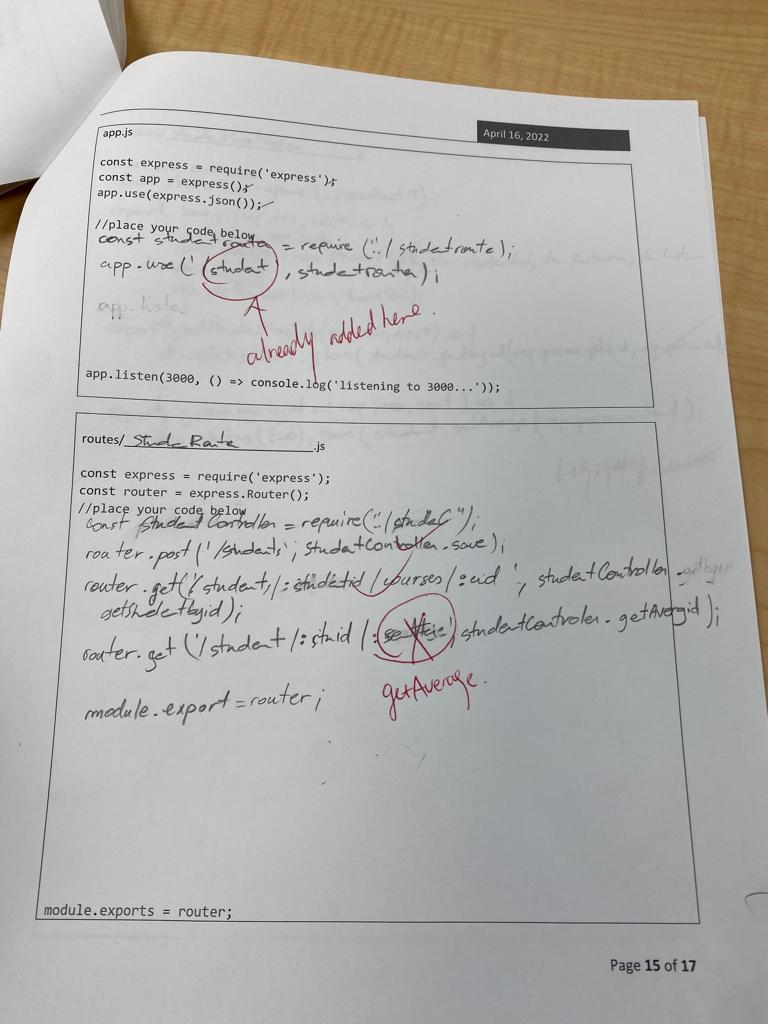 app.js
April 16, 2022
const express = require('express');
const app = express();
app.use(express.json());
//place your code below
const studentroute = require ("./studentroute);
app.use('/student', studentroute);
app.liste
already added here.
app.listen(3000, () => console.log('listening to 3000...'));
routes/ Stude Route .js
const express = require('express');
const router = express.Router();
//place your code below
const studentController = require("./studet");
router.post('/students', studentController.save);
router.get('/student/:studetid/courses/:cid', studentController.
getstudetbyid);
router.get('/student/:stuid/: studentControler.getAvergid);
getAverage.
module.export=router;
module.exports = router;
Page 15 of 17